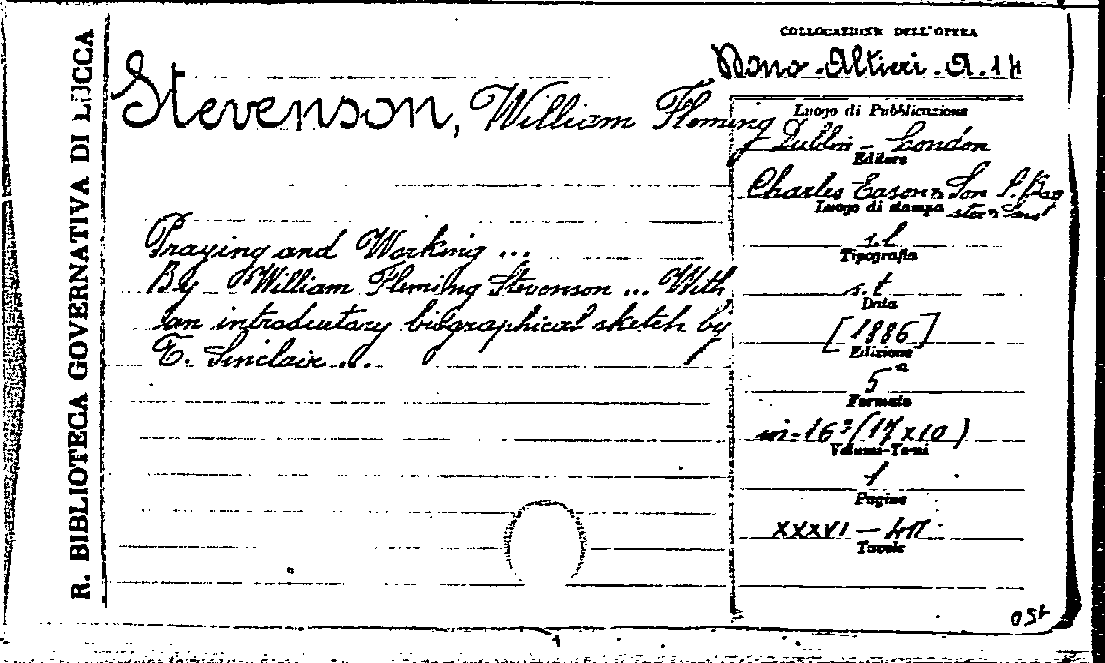 R. BIBLIOTECA GOVERNATIVA DI LUCCA
COLLOCAZIONE DELL'OPERA
Dono-Altieri-A.14
Stevenson, William Fleming
Luogo di Pubblicazione
Dublin - London
Editore
Charles Eason & Son S. Bag
ster & Sons
Luogo di stampa
s.l
Tipografia
s.t
Data
[1886]
Edizione
5ª
Formato
in-16º (17 x 10)
Volumi-Tomi
1
Pagine
XXXVI -
Tavole
Praying and Working ...
By William Fleming Stevenson ... With
an introductary biographical sketch by
T. Sinclair ...